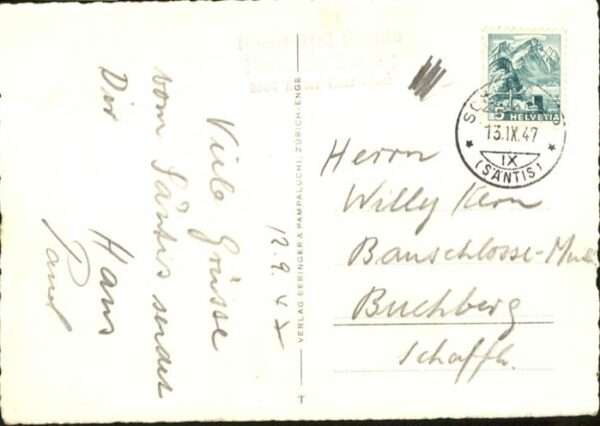 12.9.47
Viele Grüsse
vom Säntis sendet
Dir Hans
VERLAG BERINGER & PAMPALUCHI, ZÜRICH-ENGE
T
5 HELVETIA
13.IX.47
IX
(SÄNTIS)
Herrn
Willy Kern
Buchberg
Schaffh.